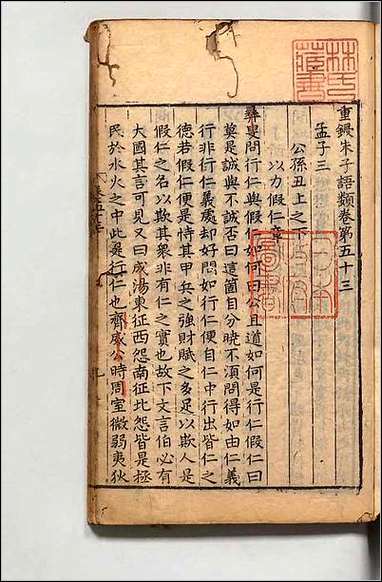 重鋟朱子語類卷第五十三
孟子三
公孫丑上之下
以力假仁章
彝叟問行仁與假仁如何曰公且道如何是行仁假仁曰
莫是誠與不誠否曰這箇自分曉不須問得如由仁義
行非行仁義處却好問如行仁便自仁中行出皆仁之
德若假仁便是恃其甲兵之強財賦之多足以欺人是
假仁之名以欺其衆非有仁之實也故下文言伯必有
大國其言可見又曰成湯東征西怨南征北怨皆是極
民於水火之中此是行仁也齊威公時周室微弱夷狄
林氏藏書
圖書